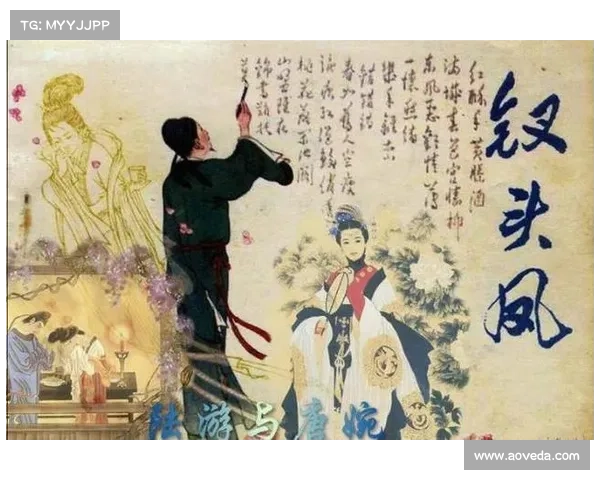 TG: MYYJJPP
钗头凤
红酥手黄縢酒
满城春色宫墙柳
东风恶欢情薄
一怀愁绪
几年离索
错错错
春如旧人空瘦
泪痕红浥鲛绡透
桃花落闲池阁
山盟虽在
锦书难托
莫
陆游与唐婉
www.aoveda.com